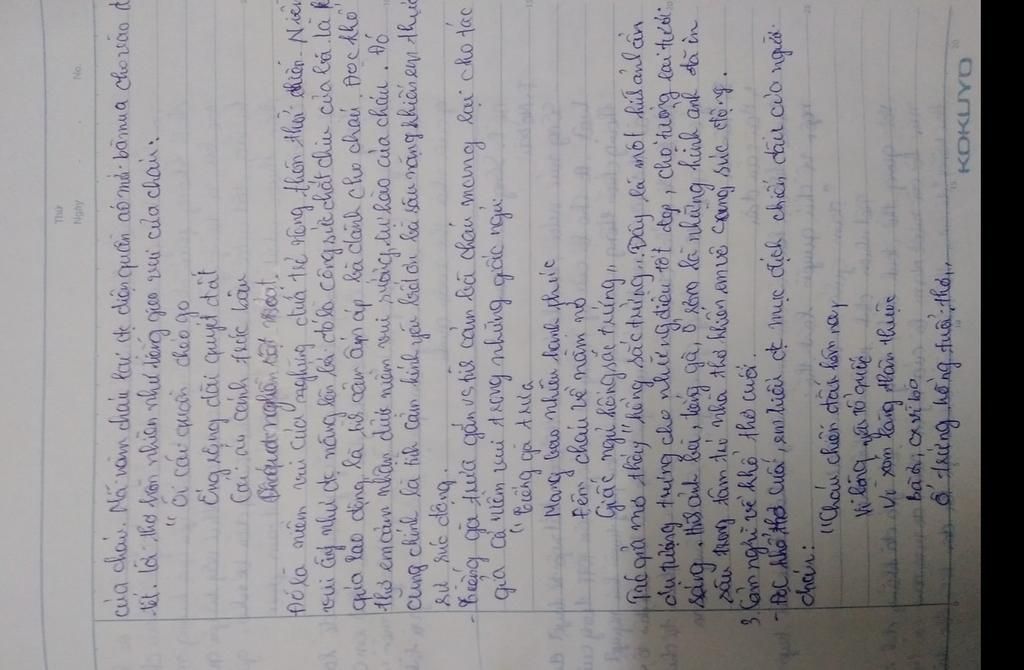 Thứ
Ngày
No.
của cháu. Mỗi năm cháu lại được diện quần áo mới bà mua cho vào d
tết. Lời thơ hồn nhiên như tiếng reo vui của cháu.
"Ôi cái quần chéo go
Ống rộng dài quyét đất
Cái áo cánh trúc bâu
Đó là niềm vui của nghững đứa trẻ nông thôn thời thiếu. Niềm
vui ấy như được nâng lên bởi đó là công sức chắt chiu của bà là k
quả lao động là, hơi ấm áp bà dành cho cháu. Đọc khổ
thơ em cảm nhận được niềm vui sướng, tự hào của cháu. Đó
cũng chính là tình cảm kính yêu, biết ơn bà sâu nặng khiến em thực
sự xúc động.
- Tiếng gà trưa gắn với tình cảm bà cháu mang lại cho tác
giả cả niềm vui trong những giấc ngủ:
"Tiếng gà trưa
Mang bao nhiêu hạnh phúc
Đêm cháu về nằm mơ
Giấc ngủ hồng sắc trứng"
Tác giả mơ thấy "hồng sắc trứng". Đây là một hình ảnh ẩn
dụ tượng trưng cho những điều tốt đẹp, cho tương lai tươi
sáng. Hình ảnh bà, tiếng gà, ổ rơm là những hình ảnh đã in
sâu trong tâm trí nhà thơ khiến em vô cùng xúc động.
3. Cảm nghĩ về khổ thơ cuối.
- Đọc khổ thơ cuối, em hiểu được mục đích chiến đấu của người
cháu:
"Cháu chiến đấu hôm nay
Vì lòng yêu tổ quốc
Vì xóm làng thân thuộc
Bà ơi, cx vì bà
Ổ trứng hồng tuổi thơ"
KOKUYO